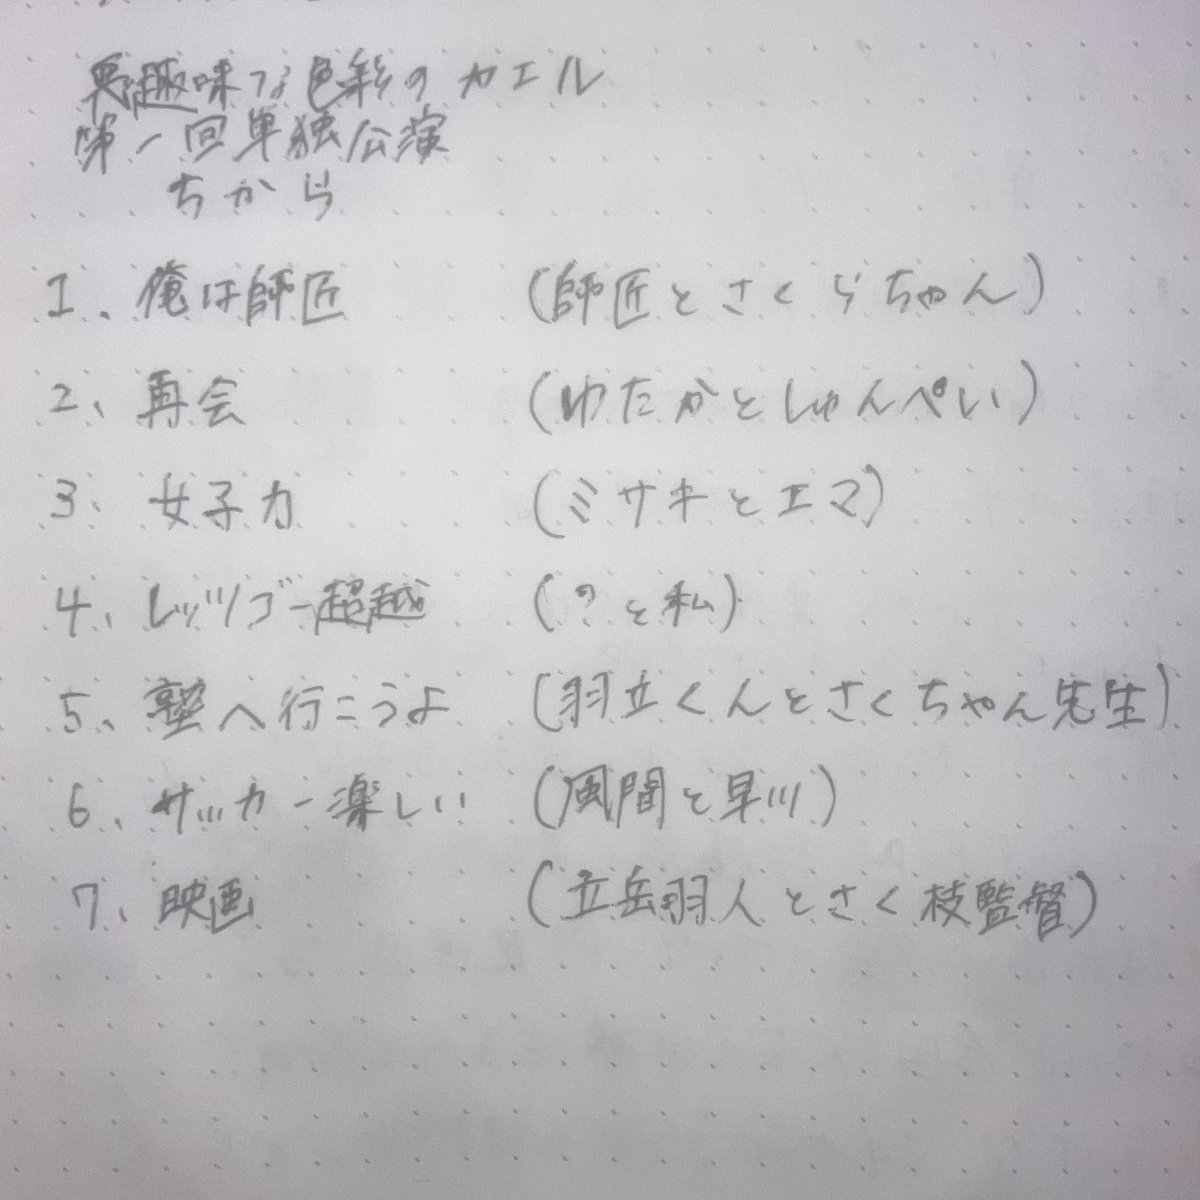 悪趣味な色彩のカエル
第一回単独公演
ちから
1、俺は師匠 (師匠とさくらちゃん)
2、再会 (ゆたかとしゅんぺい)
3、女子力 (ミサキとエマ)
4、レッツゴー超越 (?と私)
5、塾へ行こうよ (羽立くんとさくちゃん先生)
6、サッカー楽しい (風間と早川)
7、映画 (立岳羽人とさく枝監督)